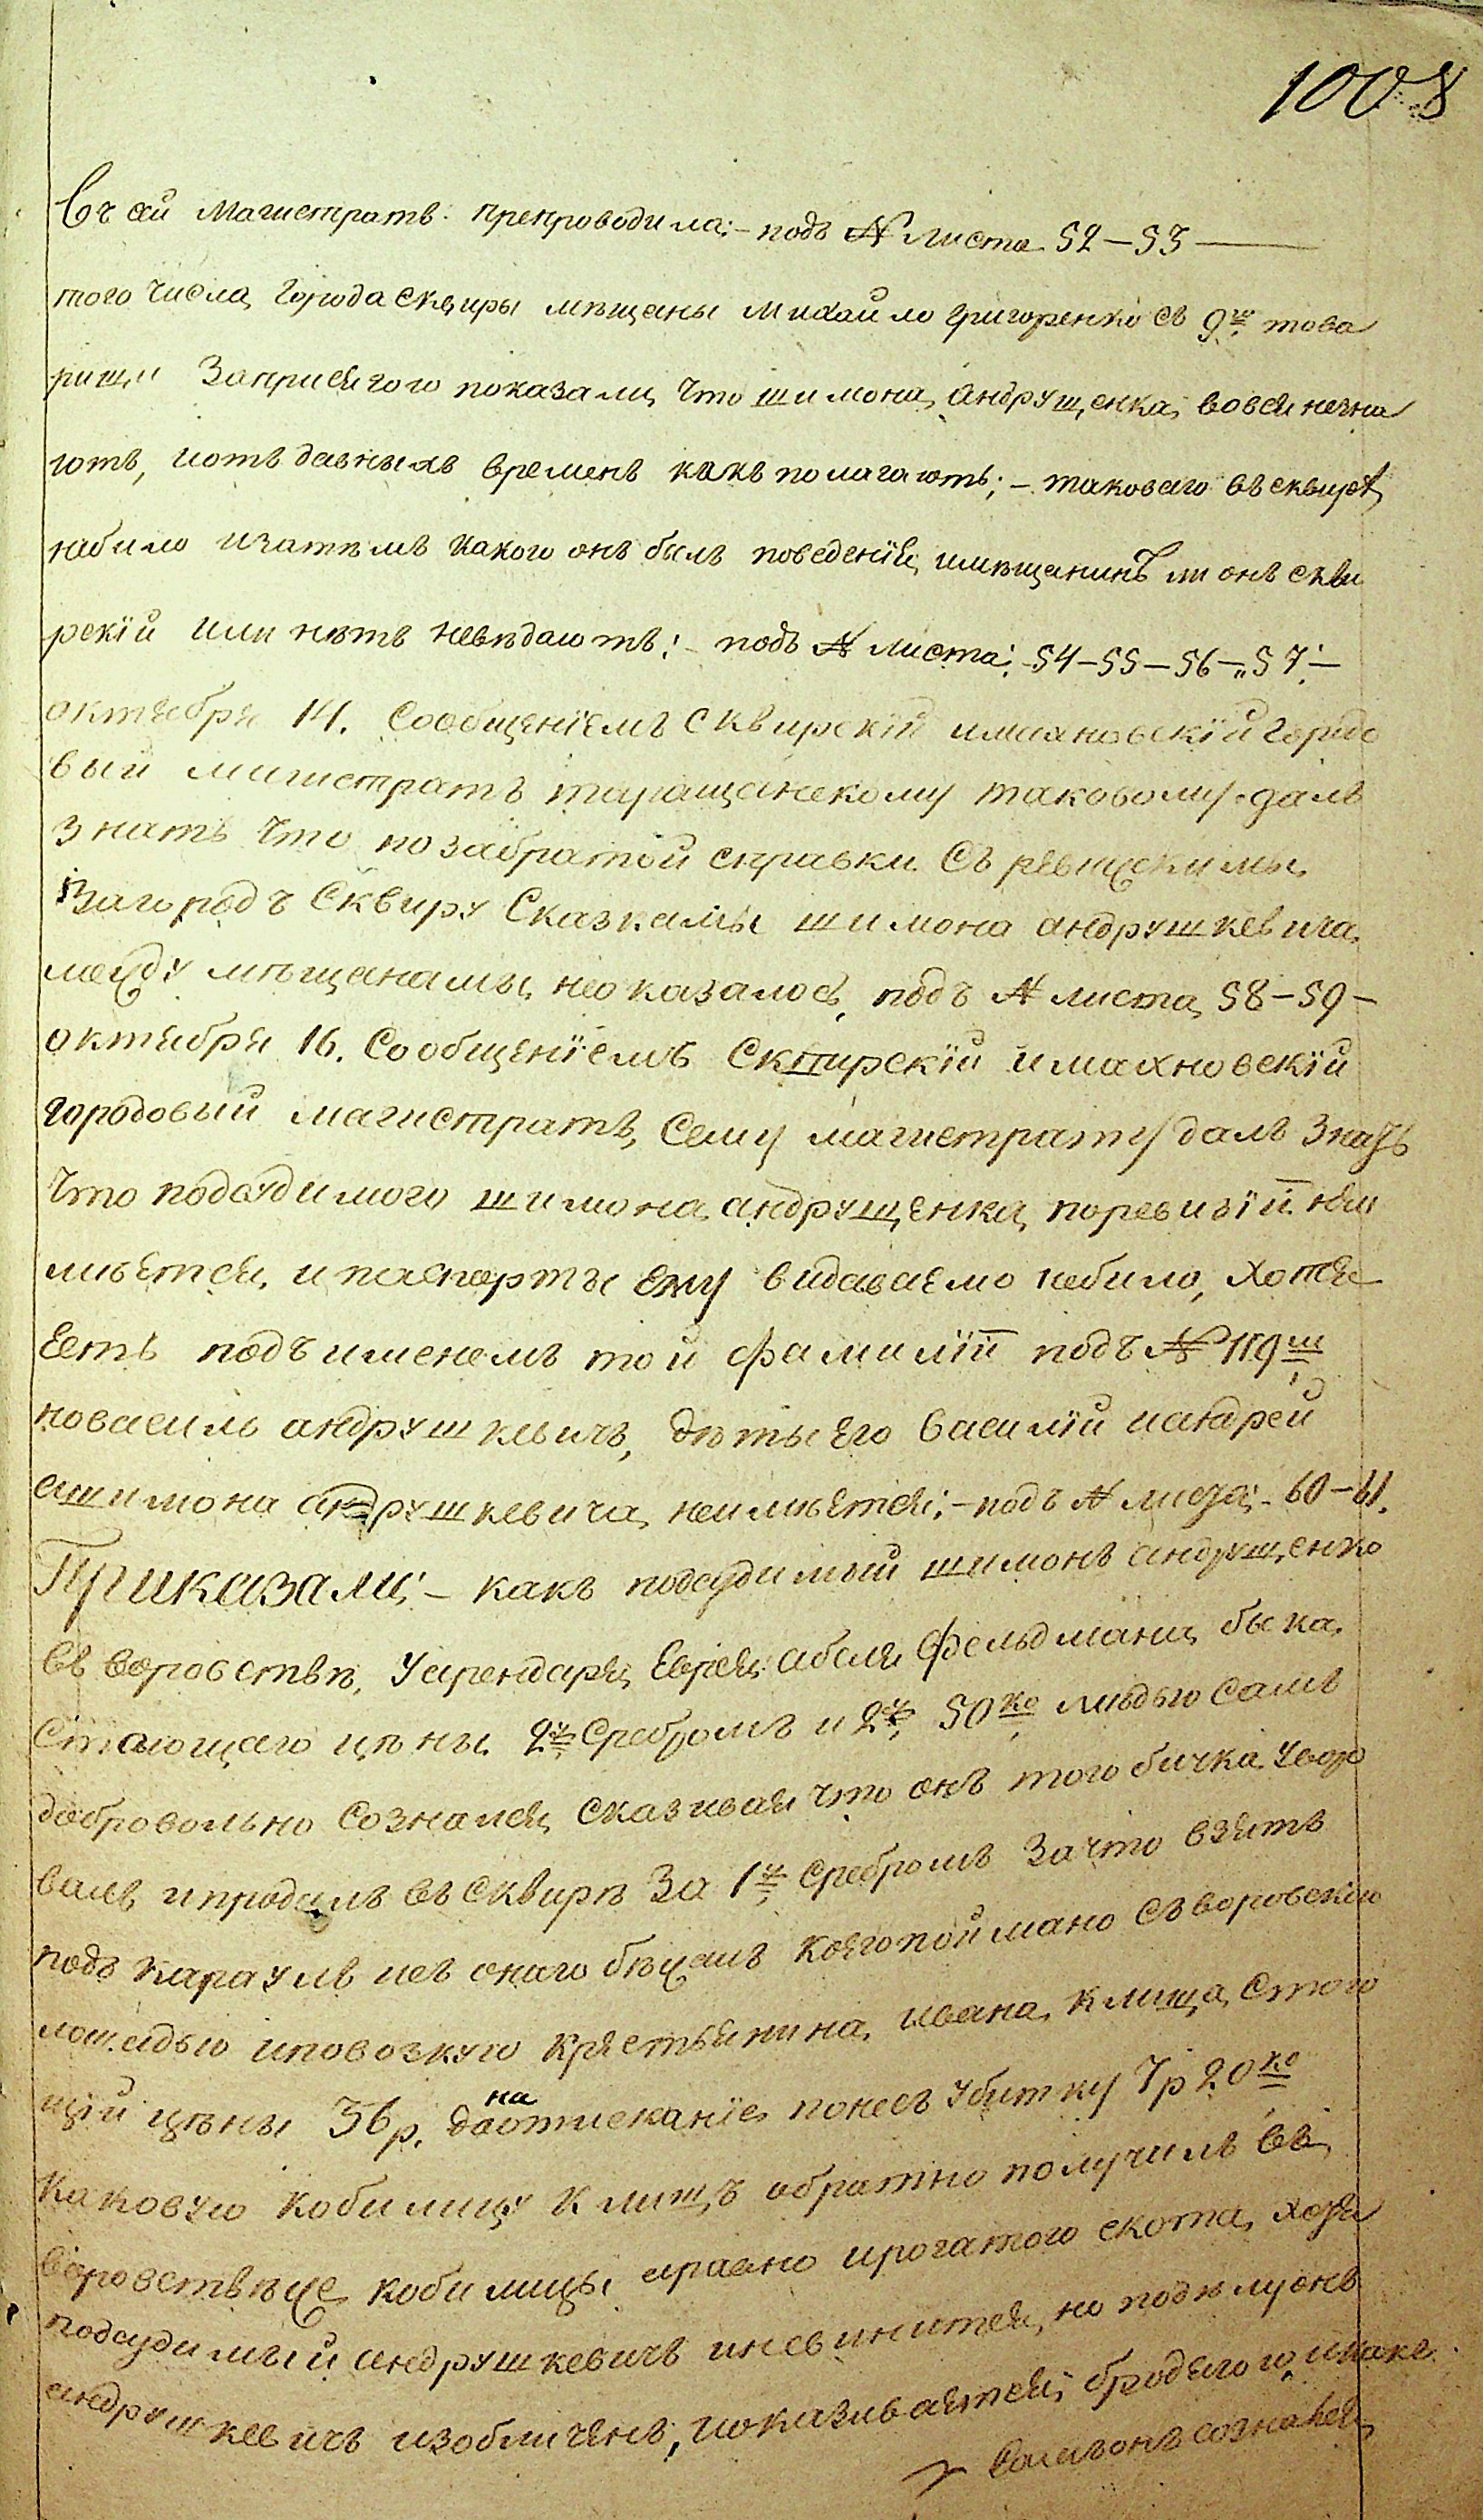 1008
Въ сей магистратъ препроводила; – подъ № листа 52 – 53 –
того числа города сквиры мѣщаны михайло григоренко съ 9ю това
рищи Заприсягою показали, что шимона андрущенка, вовся незна
ютъ, иотъ давныхъ временъ какъ полагаютъ; – таковаго въ сквирѣ
небило изатѣмъ какого онъ былъ поведенія, имѣщанинъ ли онъ скви
рскій или нѣтъ невѣдаютъ: – подъ № листа; 54 – 55 – 56 – 57; –
октября 14. сообщеніемъ сквирскій имахновскій городо
вый магистратъ таращанскому таковому далъ
знать что позабратой справки съ ревизскимы
загородъ Сквиру Сказкамы шимона андрушкевича,
между мѣщанамы, неоказалось, подъ № листа, 58 – 59 –
октября 16. Сообщеніемъ Сквирскій имахновскій
городовый магистратъ, сему магистрату далъ знать
что подсудимого шимона андрущенка, поревизіи неи
мѣется, и паспорты ему видаваемо небило, хотя
есть подъ именемъ той фамиліи подъ № 119м
новасиль андрушкевичъ, дѣты его василій иандрей
ашимона андрушкевича, неимѣется; – подъ № листа; 60 – 61.
Приказали; – какъ подсудимый шимонъ андрущенко
въ воровствѣ, у арендаря, Еврея абеля фельдмана, быка,
стающаго цѣны 2р сребромъ и 2р 50ко мѣдью самъ
добровольно сознался, сказивая что онъ того бичка уворо
валъ, ипродалъ въ сквирѣ за 1р сребромъ зачто взятъ
подъ караулъ исъ онаго бѣжалъ коего поймано съ воровскою
лошадью иповозкую крестьянина, ивана, клища, стою
щій цѣны 36р, на даотисканіе, понесъ убитку 7р 20ко
каковую кобилицу клищъ обратно получилъ въ
воровствѣже кобилицы, иравно ирогатого скота, хотя
подсудимый андрушкевичъ иневинится, но поднемуонъ
андрушкевичъ изобличенъ, ноказивается, бродягою, икакъ
самъонъ сознался,